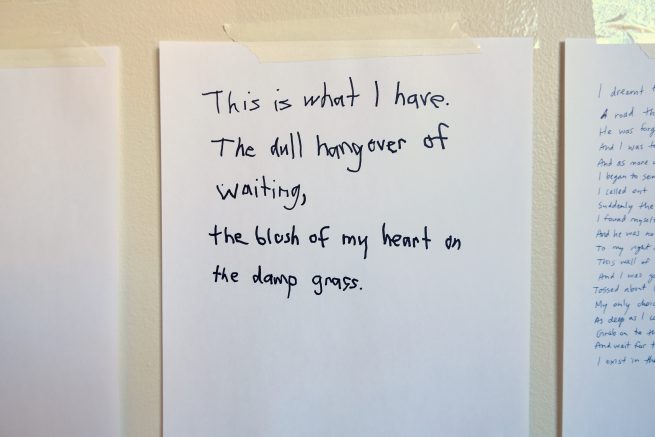 This is what I have.
The dull hangover of
waiting,
the blush of my heart on
the damp grass.
I dreamt
A road
He was
And I was
And as more
I began to
I called out
Suddenly the
I found myself
And he was
To my right
This wall of
And I was
Tossed about
My only
As deep as I
Grab on to
And wait for
I exist in the